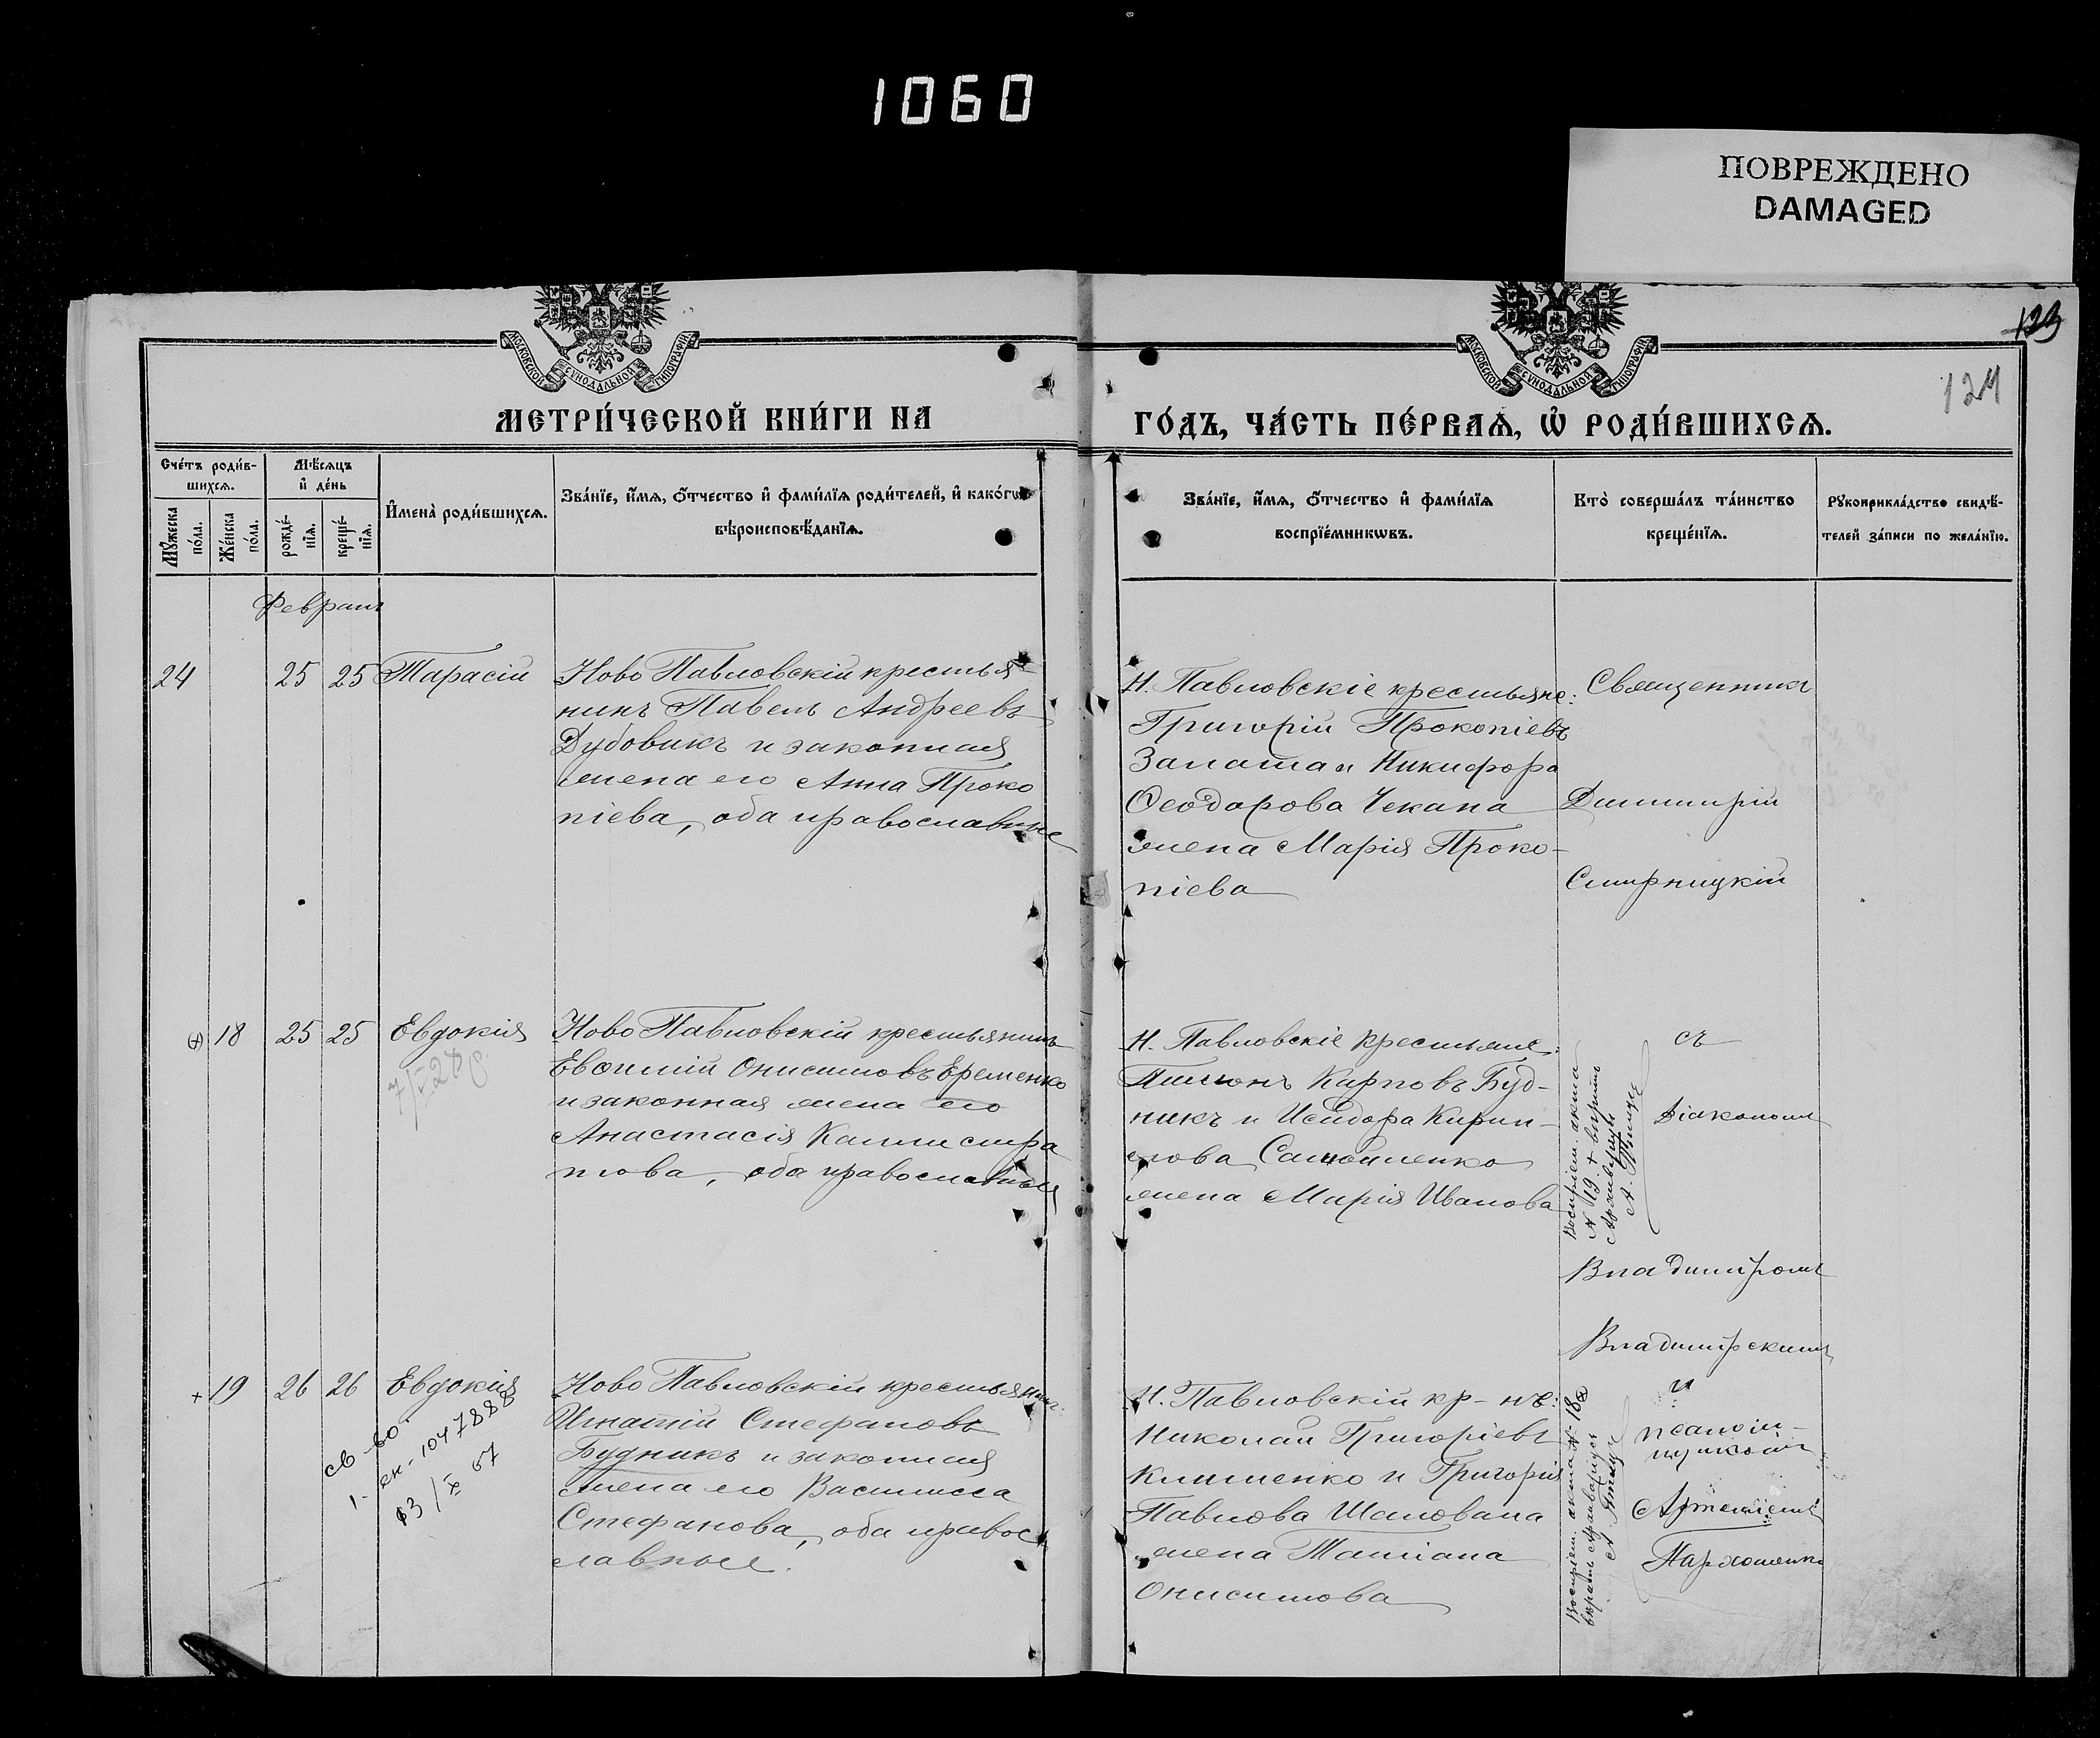 1060
ПОВРЕЖДЕНО
DAMAGED
МОСКОВСКОЙ СУНОДАЛЬНОЙ ТИПОГРАФІИ
МОСКОВСКОЙ СУНОДАЛЬНОЙ ТИПОГРАФІИ
123
124
МЕТРИ́ЧЕСКОЙ КНИ́ГИ НА
ГО́ДЪ, ЧА́СТЬ ПЕ́РВАѦ, Ѡ҆ РОДИ́ВШИХСѦ.
Сче́тъ роди́в-
шихсѧ.
Мꙋ́жеска
по́ла.
Же́нска
по́ла.
Мѣ́сѧцъ
и҆ де́нь
рожде́-
нїѧ.
креще́-
нїѧ.
И҆мена̀ роди́вшихсѧ.
Зва́нїе, и҆́мѧ, ѻ҆́тчество и҆ фами́лїѧ роди́телей, и҆ како́гѡ
вѣроисповѣ́данїѧ.
Зва́нїе, и҆́мѧ, ѻ҆́тчество и҆ фами́лїѧ
воспрїе́мникѡвъ.
Кто̀ соверша́лъ та́инство
креще́нїѧ.
Рꙋкоприкла́дство свидѣ́-
телей за́писи по жела́нїю.
Февраль
24
25
25
Тарасій
Ново Павловскій крестья-
нинъ Павелъ Андреевъ
Дубовикъ и законная
жена его Анна Проко
піева, оба православные
Н. Павловскіе крестьяне:
Григорій Прокопіевъ
Запаша и Никифора
Ѳеодорова Чекана
жена Марія Проко-
піева
Священникъ
Димитрій
Смирницкій
18
25
25
Евдокія
Ново Павловскій крестьянинъ
Евѳимій Онисимовъ Еременко
и законная жена его
Анастасія Каллистра
това, оба православные
Н. Павловскіе крестьяне:
Пимонъ Карповъ Буд-
никъ и Исидора Кирил-
лова Самойленко
жена Марія Иванова
Воспріем. акта
№ 19 +
съ
Діакономъ
Владиміромъ
Владимірскимъ
+
19
26
26
Евдокія
св-во
1-ек-1047888
13/X 67
Ново Павловскій крестьянинъ
Игнатій Стефановъ
Будникъ и законная
жена его Василисса
Стефанова, оба правос
лавные.
Н. Павловскій кр-не:
Николай Григоріевъ
Клименко и Григорія
Павлова Шаповала
жена Татіана
Онисимова
Воспріем. акта № 18
и
псалом-
щикомъ
Артеміемъ
Пархоменко